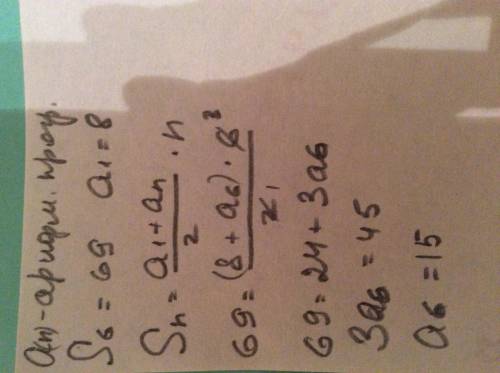 a(n) - арифм. прогр.
S₆ = 69 a₁ = 8
Sₙ = (a₁ + aₙ)/2 · n
69 = (8 + a₆) · 6̸ ³ / 2̸ ₁
69 = 24 + 3a₆
3a₆ = 45
a₆ = 15